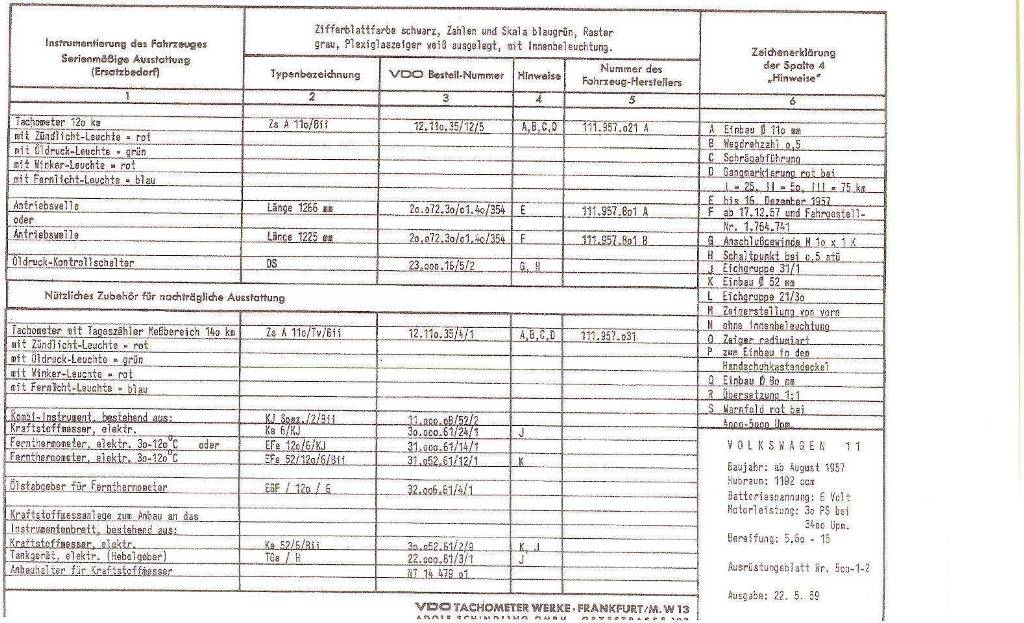 Instrumentierung des Fahrzeuges
Serienmäßige Ausstattung
(Ersatzbedarf)
Zifferblattfarbe schwarz, Zahlen und Skala blaugrün, Raster
grau, Plexiglaszeiger weiß ausgelegt, mit Innenbeleuchtung.
Zeichenerklärung
der Spalte 4
„Hinweise"
Typenbezeichnung VDO Bestell-Nummer Hinweise Nummer des
Fahrzeug-Herstellers
1 2 3 4 5 6
Tachometer 12o km Zs A 11o/8ii 12.11o.35/12/5 A,B,C,D 111.957.o21 A
mit Zündlicht-Leuchte = rot
mit Öldruck-Leuchte = grün
mit Winker-Leuchte = rot
mit Fernlicht-Leuchte = blau
Antriebswelle Länge 1266 mm 2o.o72.3o/o1.4o/354 E 111.957.8o1 A
oder
Antriebswelle Länge 1225 mm 2o.o72.3o/o1.4o/354 F 111.957.8o1 B
Öldruck-Kontrollschalter DS 23.ooo.16/5/2 G, H
Nützliches Zubehör für nachträgliche Ausstattung
Tachometer mit Tageszähler Meßbereich 14o km Zs A 11o/Tv/6ii 12.11o.35/4/1 A,B,C,D 111.957.o31
mit Zündlicht-Leuchte = rot
mit Öldruck-Leuchte = grün
mit Winker-Leuchte = rot
mit Fernlicht-Leuchte = blau
Kombi-Instrument, bestehend aus: KJ Spez./2/Bii 11.ooo.o8/52/2
Kraftstoffmesser, elektr. Ke 6/KJ 3o.ooo.61/24/1 J
Fernthermometer, elektr. 3o-12o°C oder EFe 12o/6/KJ 31.ooo.61/14/1
Fernthermometer, elektr. 3o-12o°C EFe 52/12o/6/Bii 31.o52.61/12/1 K
Ölstabgeber für Fernthermometer EGF / 12o / 6 32.oo6.61/4/1
Kraftstoffmessanlage zum Anbau an das
Instrumentenbrett, bestehend aus:
Kraftstoffmesser, elektr. Ke 52/6/Bii 3o.o52.61/2/9 K, J
Tankgerät, elektr. (Hebelgeber) TGe / H 22.ooo.61/3/1 J
Anbauhalter für Kraftstoffmesser NT 14 479 o1
A Einbau Ø 11o mm
B Wegdrehzahl o,5
C Schrägabführung
D Gangmarkierung rot bei
I = 25, II = 5o, III = 75 km
E bis 16. Dezember 1957
F ab 17.12.57 und Fahrgestell-
Nr. 1.764.741
G Anschlußgewinde M 1o x 1 K
H Schaltpunkt bei o,5 atü
J Eichgruppe 31/1
K Einbau Ø 52 mm
L Eichgruppe 21/3o
M Zeigerstellung von vorn
N ohne Innenbeleuchtung
O Zeiger radiumiert
P zum Einbau in den
Handschuhkastendeckel
Q Einbau Ø 8o mm
R Übersetzung 1:1
S Warnfeld rot bei
4ooo-5ooo Upm.
VOLKSWAGEN 11
Baujahr: ab August 1957
Hubraum: 1192 ccm
Batteriespannung: 6 Volt
Motorleistung: 3o PS bei
34oo Upm.
Bereifung: 5.6o - 15
Ausrüstungsblatt Nr. 5oo-1-2
Ausgabe: 22. 5. 59
VDO TACHOMETER WERKE · FRANKFURT/M. W 13
ADOLF SCHINDLING GMBH